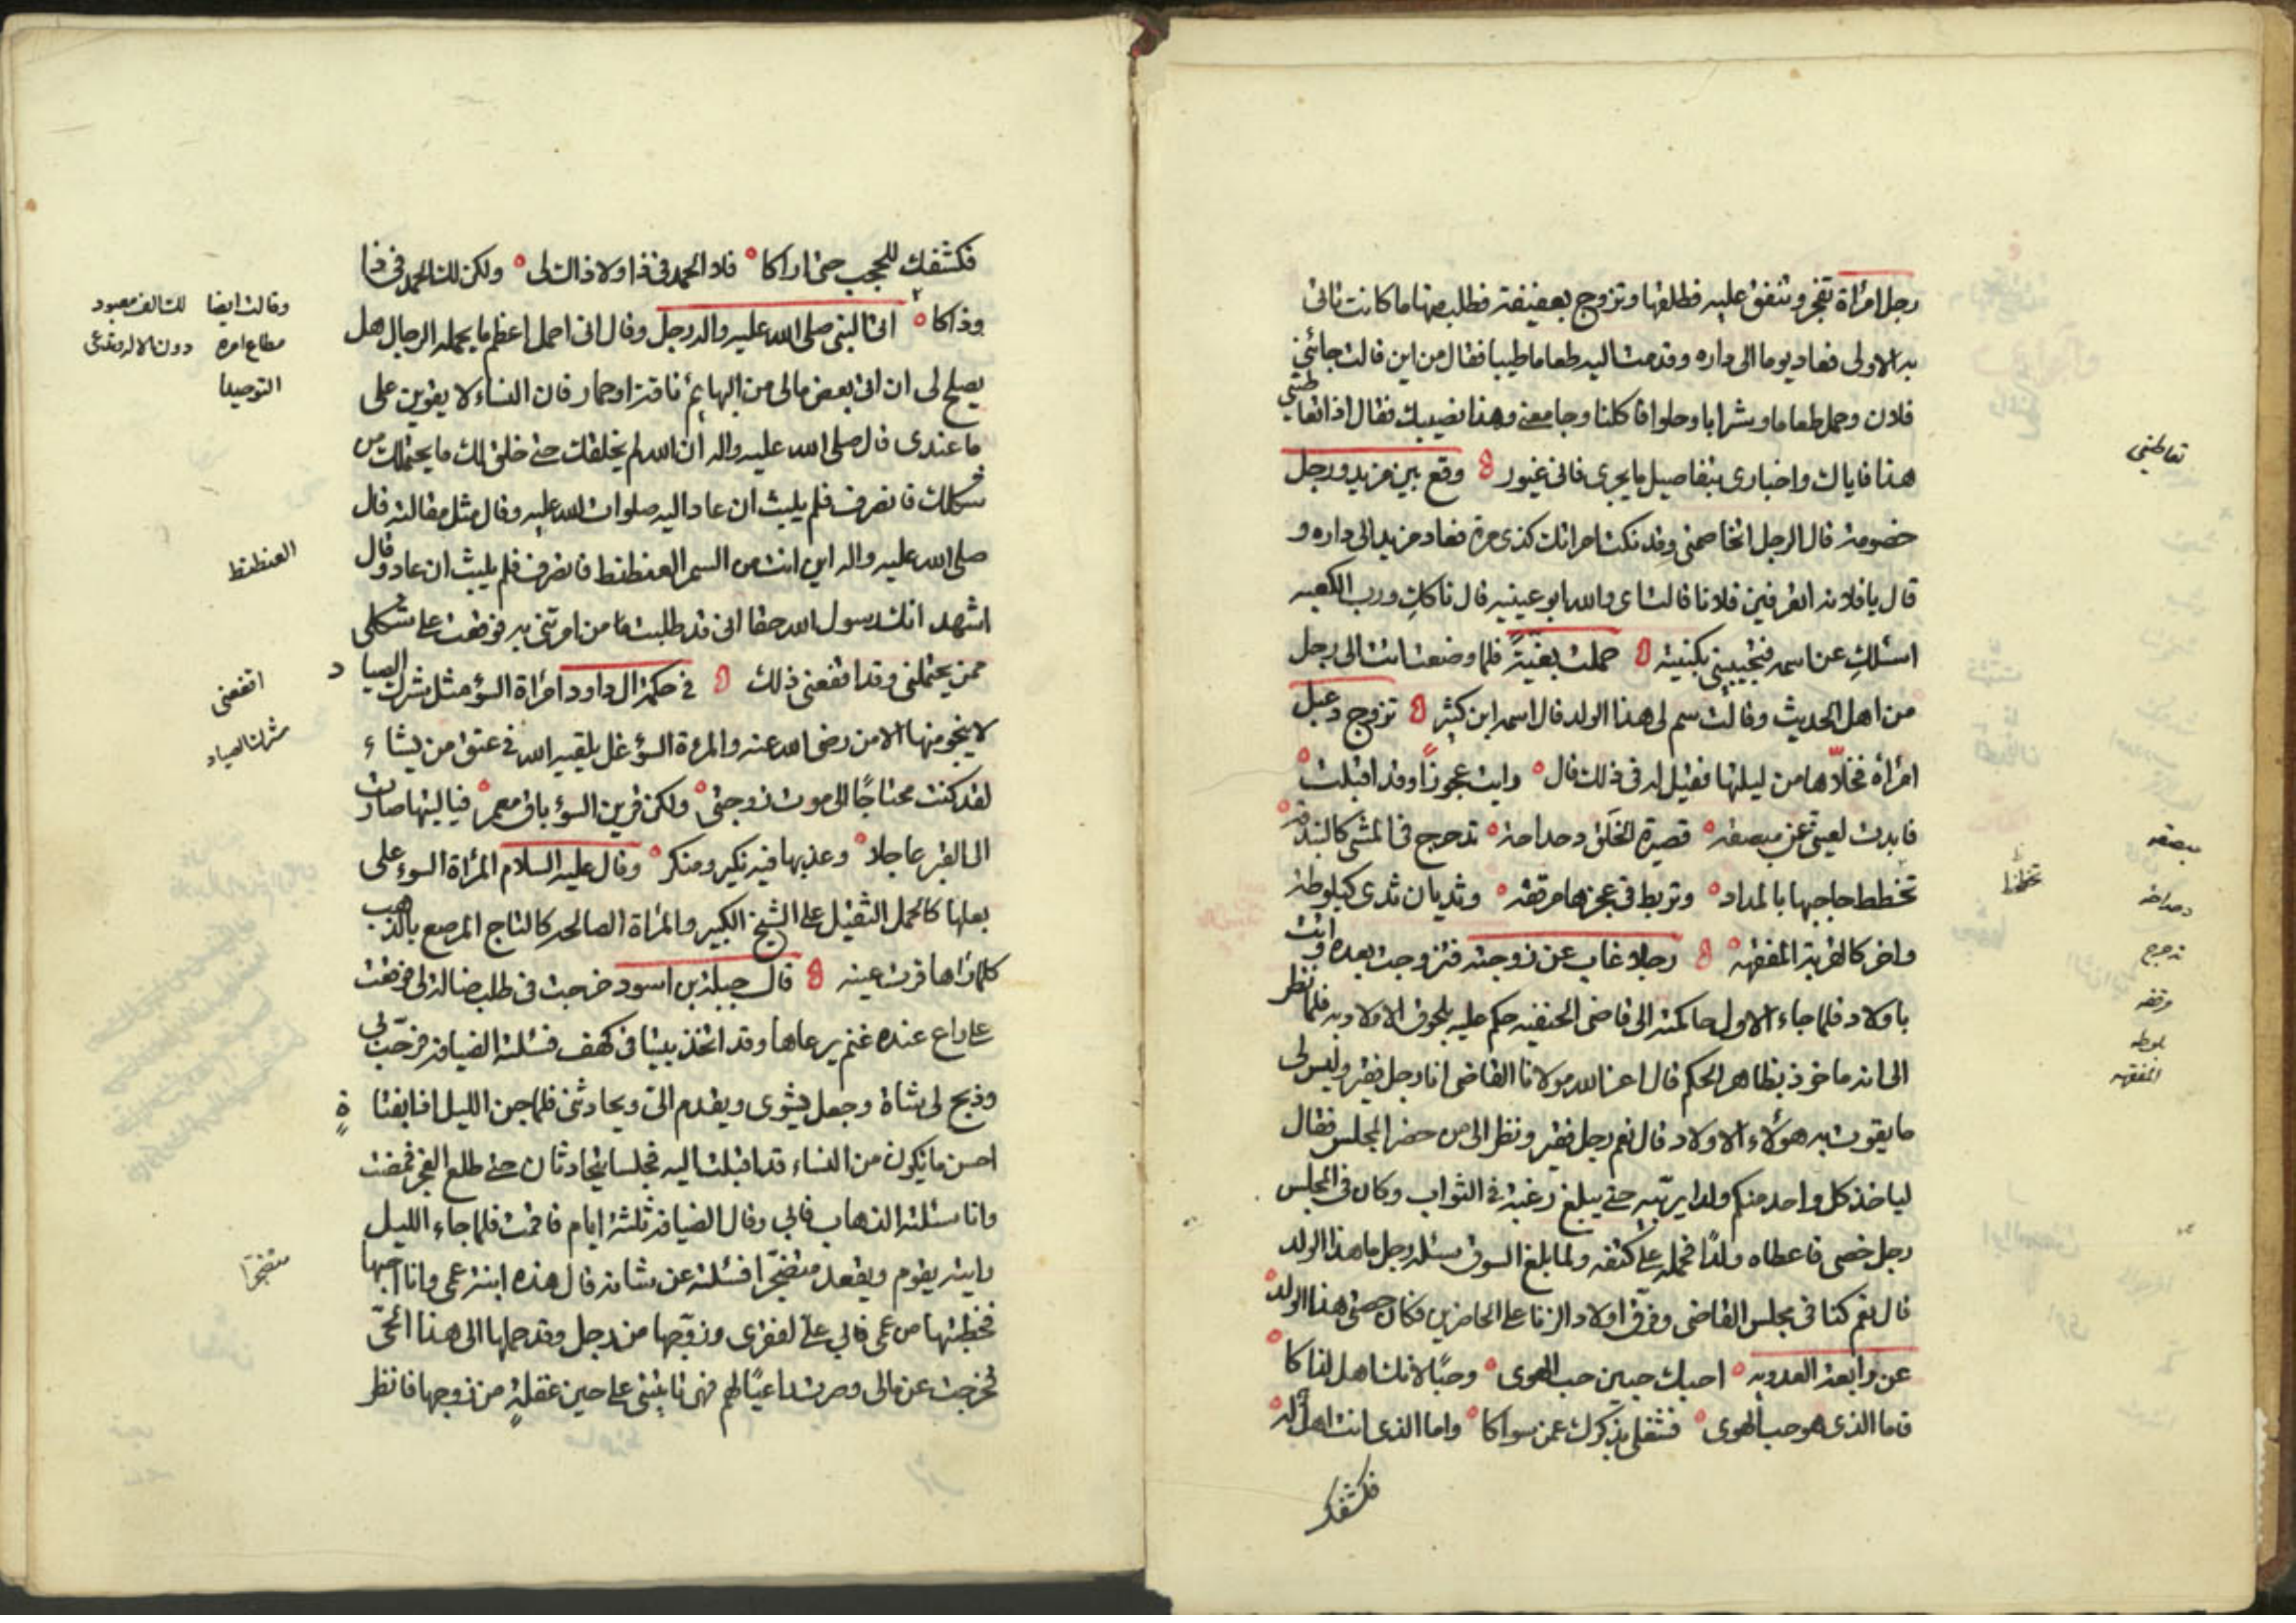 رجل امرأة تفجر وتنفق عليه فطلقها وتزوج بعفيفة فطلب منها ما كانت تأتى
به الاولى فعاد يوما الى داره وقدمت اليه طعاما طيبا فقال من اين قالت جائنى
فلان وحمل طعاما وشرابا وحلوا فاكلنا وجامعنى وهذا نصيبك فقال اذا تعاطيتى
هذا فاياك واخبارى بتفاصيل ما يجرى فانى غيور وقع بين مزيد ورجل
خصومة قال الرجل اتخاصمنى وقد نكت امراتك كذى مرة فعاد مزيد الى داره و
قال يا فلانه اتعرفين فلانا قالت اى والله ابو عيينيه قال ناكك ورب الكعبه
اسئلك عن اسمه فتجيبينى بكنيته حملت بغيّة فلما وضعت اتت الى رجل
من اهل الحديث وقالت سم لى هذا الولد قال اسمه ابن كثير تزوج دعبل
امرأة فخلّاها من ليلتها فقيل له فى ذلك قال رايت عجوزاً وقد اقبلت
فابدت لعينى عن مبصقه قصيرة الخلق دحداحة تدحرج فى المشى كالبندقه
تخطط حاجبها بالمداد وتربط فى عجزها مرفقه وثديان ثدى كبلوطة
واخر كالقربة المفقهه رجلا غاب عن زوجته فتزوجت بعده واتت
باولاد فلما جاء الاول حاكمته الى قاضى الحنفيه حكم عليه بلحوق الاولاد به فلما نظر
الى انه ماخوذ بظاهر الحكم قال اعز الله مولانا القاضى انا رجل فقير وليس لى
ما يقوت به هؤلاء الاولاد قال نعم رجل فقير ونظر الى من حضر المجلس فقال
لياخذ كل واحد منكم ولدا يربّيه حتى يبلغ رغبة فى الثواب وكان فى المجلس
رجل خصى فاعطاه ولدًا فحمله على كتفه ولما بلغ السوق سئله رجل ما هذا الولد
قال نعم كنا فى مجلس القاضى وفرق اولاد الزنا على الحاضرين فكان حصتى هذا الولد
عن رابعة العدويه احبك حبين حب الهوى وحبًا لانك اهل لذاكا
فاما الذى هو حب الهوى فشغلى بذكرك عمن سواكا واما الذى انت اهل له
فكشفك
تعاطيتى
مبصقه
تخطط
دحداحه
تدحرج
مرفقه
بلوطه
المفقهه
فكشفك للحجب حتى اراكا فلا الحمد فى ذا ولا ذاك لى ولكن لك الحمد فى ذا
وذاكا اتى النبى صلى الله عليه واله رجل وقال انى احمل اعظم ما يحمله الرجال هل
يصلح لى ان اتى بعض مالى من البهايم ناقة او حمار فان النساء لا يقوين على
ما عندى قال صلى الله عليه واله ان الله لم يخلقك حتى خلق لك ما يحتملك من
شكلك فانصرف فلم يلبث ان عاد اليه صلوات الله عليه وقال مثل مقالته قال
صلى الله عليه واله اين انت من السمر العنطنط فانصرف فلم يلبث ان عاد وقال
اشهد انك رسول الله حقا انى قد طلبت ما من امرتنى به فوقعت على شكلى
ممن يحتملنى وقد اقنعنى ذلك فى حكمة ال داود امرأة السؤ مثل شرك الصياد
لا ينجو منها الا من رضى الله عنه والمرءة السؤ غل يلقيه الله فى عنق من يشاء
لقد كنت محتاجًا الى موت زوجتى ولكن قرين السؤ باق معمر فياليتها صارت
الى القبر عاجلا وعذبها فيه نكير ومنكر وقال عليه السلام المرأة السوء على
بعلها كالحمل الثقيل على الشيخ الكبير والمرأة الصالحه كالتاج المرصع بالذهب
كلما راها قرت عينه قال جبلة بن اسود خرجت فى طلب ضالة لى فوقعت
على راع عنده غنم يرعاها وقد اتخذ بيتا فى كهف فسئلته الضيافة فرحّب بى
وذبح لى شاة وجعل يشوى ويقدم الىّ ويحادثنى فلما جن الليل اذا بفتاة
احسن ما يكون من النساء قد اقبلت اليه فجلسا يتحادثان حتى طلع الفجر فمضت
وانا سئلته الذهاب فابى وقال الضيافة ثلثة ايام فاقمت فلما جاء الليل
رايته يقوم ويقعد متضجّرا فسئلته عن شانه قال هذه ابنة عمى وانا احبها
فخطبتها من عمى فابى علىّ لفقرى وزوّجها من رجل وقد حملها الى هذا الحىّ
فخرجت عن مالى وصرت راعيًا لهم فهى تاتينى على حين غفلة من زوجها فانظر
وقالت ايضا لك الف معبود
مطاع امره دون الاله وتدعى
التوحيدا
العنطنط
اقنعنى
شرك الصياد
متضجرا